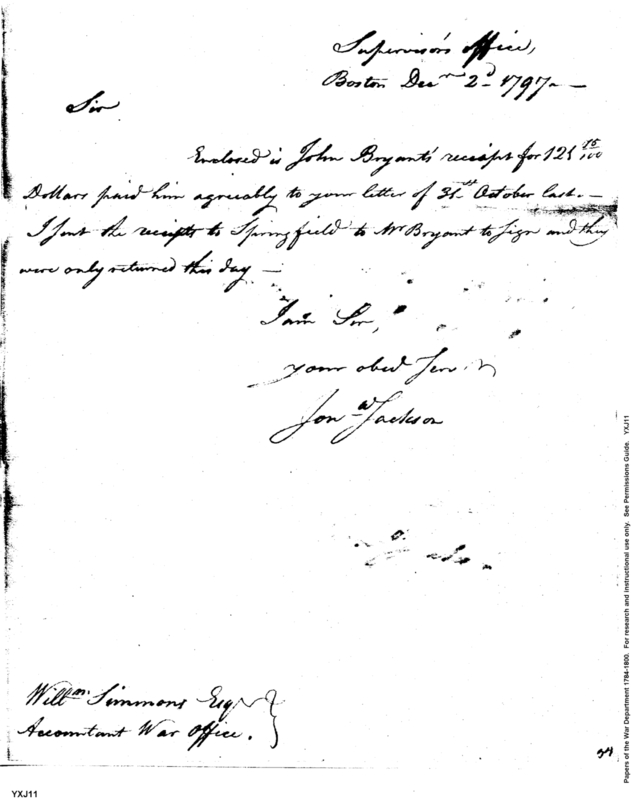 Supervisor's office,
Boston Decm 2d 1797 —
Sir
Enclosed is John Bryant's receipt for 125 15/100
Dollars paid him agreeably to your letter of 31st October last. —
I sent the receipts to Springfield to Mr Bryant to sign and they
were only returned this day —
I am Sir,
your obed Serv
Jona Jackson
Willm Simmons Esqr
Accountant War Office.
34
YXJ11
Papers of the War Department 1784-1800. For research and instructional use only. See Permissions Guide. YXJ11